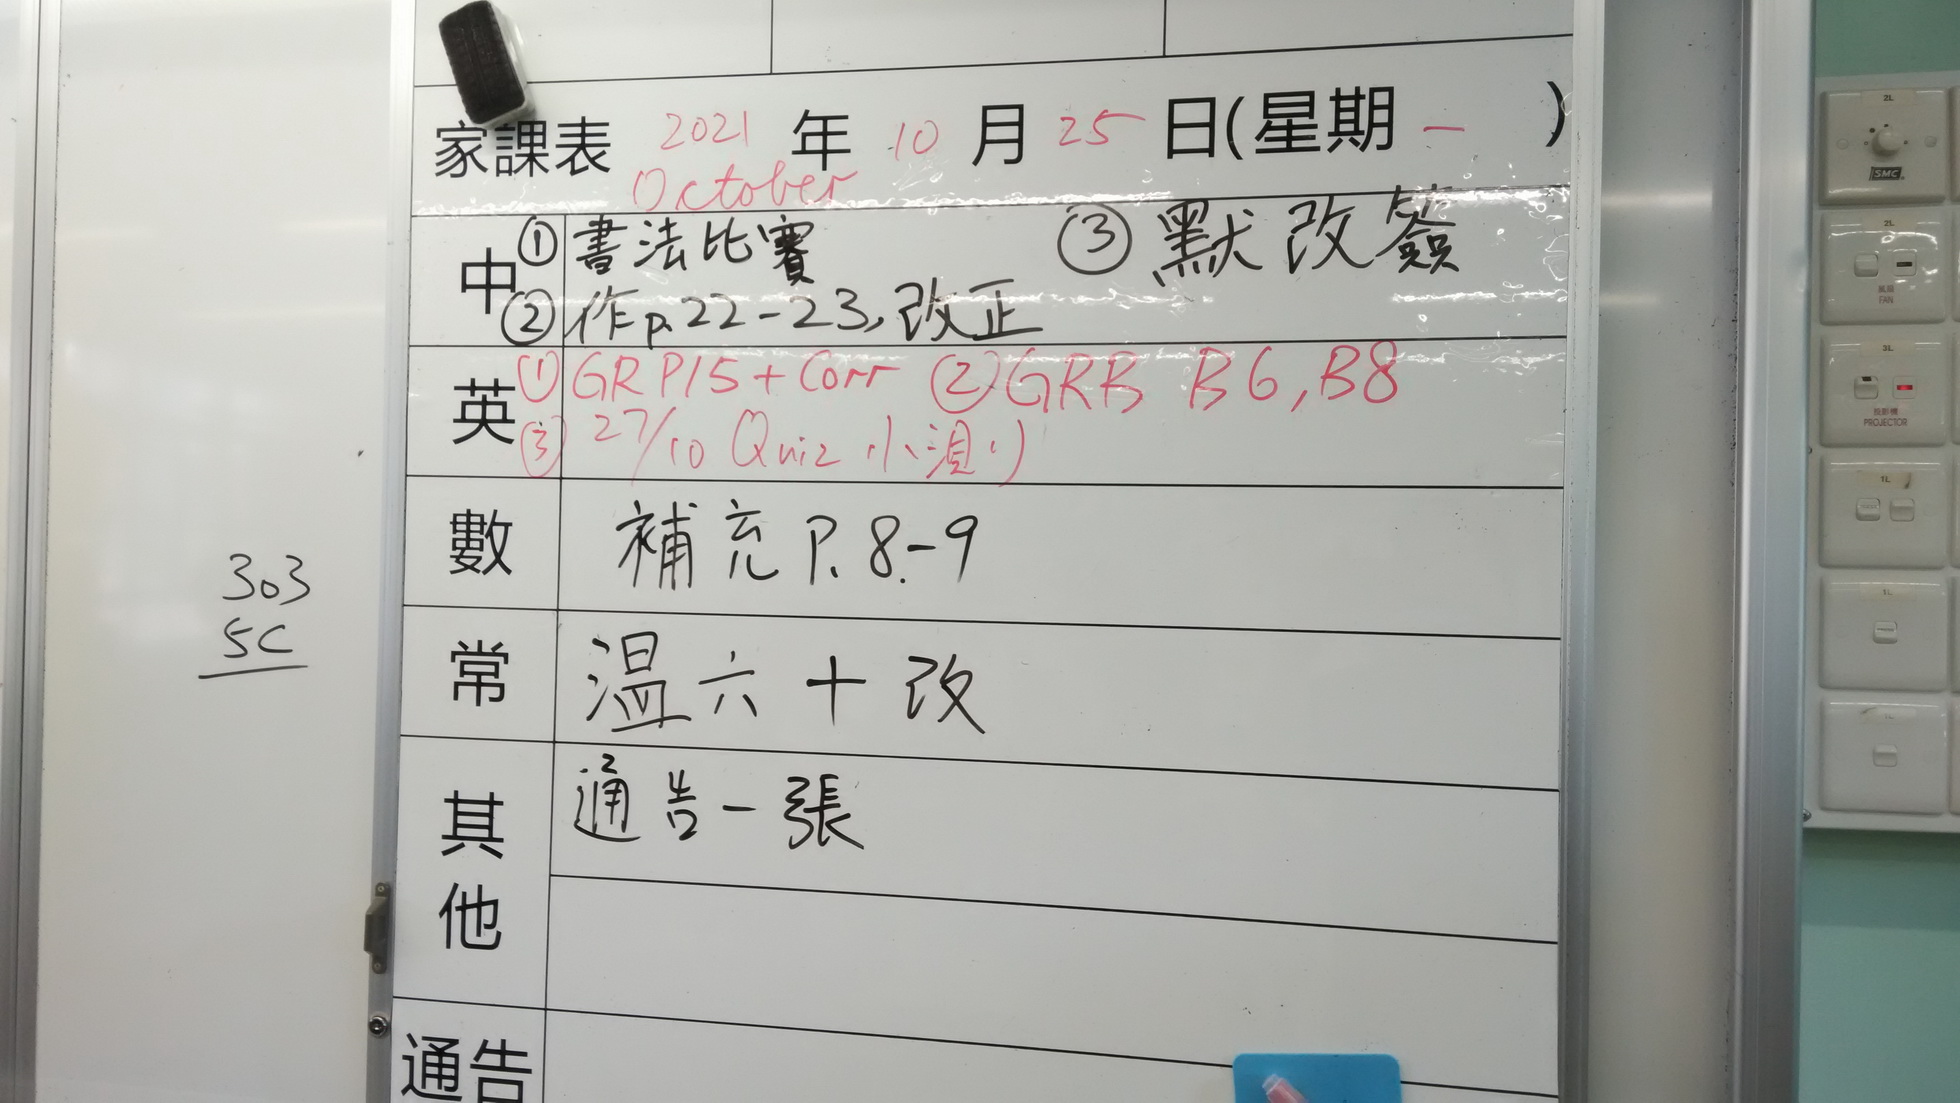 家課表 2021 年 10 月 25 日(星期 一 )
October
中 ① 書法比賽 ③ 默改簽
② 作p.22-23,改正
英 ① GR P15 + Corr ② GRB B6, B8
③ 27/10 Quiz 小測(
數 補充 P.8-9
常 溫六十改
其他 通告一張
通告
303
5C
2L
SMC
2L
風扇
FAN
3L
投影機
PROJECTOR
1L
1L
1L